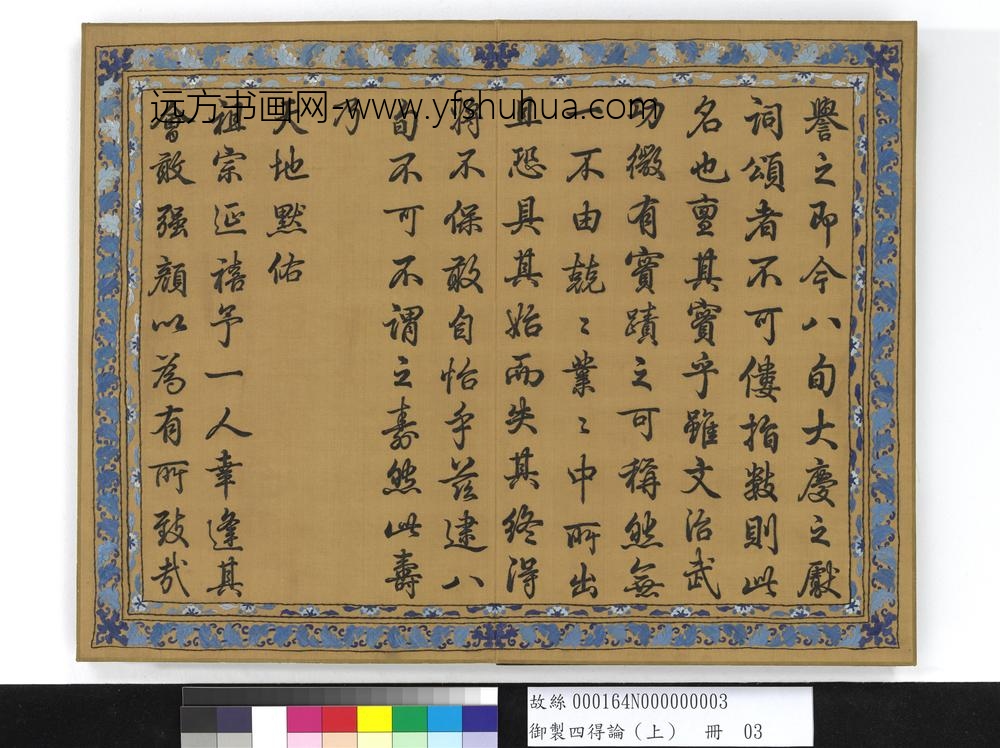 譽之即今八旬大慶之獻
詞頌者不可僂指數則此
名也亶其實乎雖文治武
功微有實蹟之可稱然無
一不由兢〻業〻中所出
且恐具其始而失其終得
將不保敢自怡乎茲逮八
旬不可不謂之壽然此壽
乃
天地默佑
祖宗延禧予一人幸逢其
會敢强顏以為有所致哉
远方书画网-www.yfshuhua.com
故絲000164N000000003
御製四得論(上) 冊 03